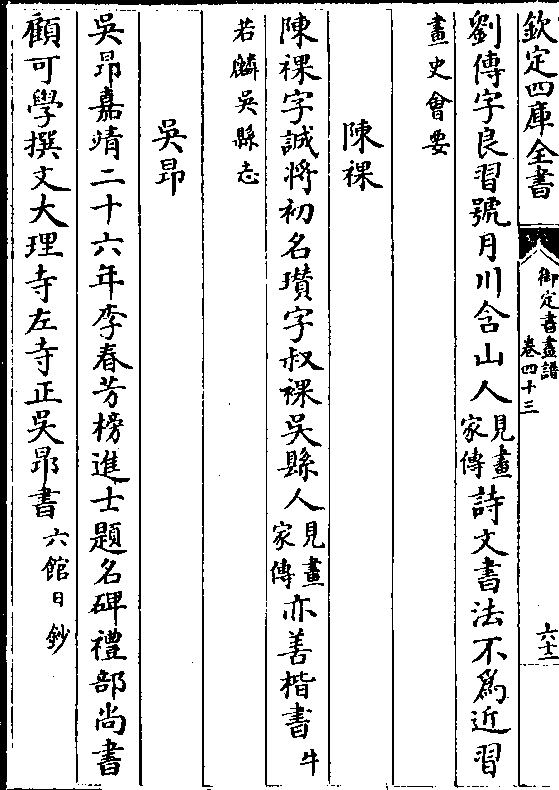 欽定四庫全書
御定書畫譜
卷四十三
六十二
劉傳字良習號月川含山人見畫家傳詩文書法不為近習
畫史會要
陳祼
陳祼字誠將初名瓚字叔祼吳縣人見畫家傳亦善楷書牛
若麟吳縣志
吳昂
吳昂嘉靖二十六年李春芳榜進士題名碑禮部尚書
顧可學撰文大理寺左寺正吳昂書六館日鈔